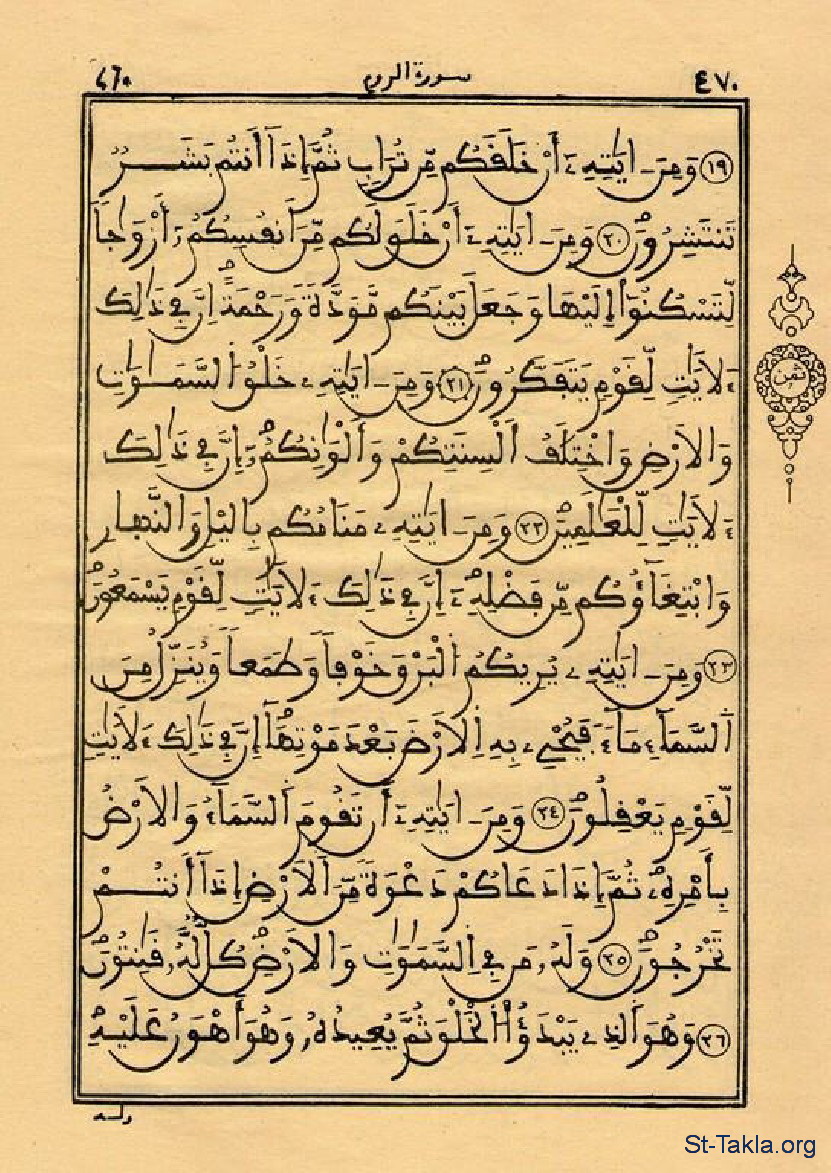 ٤٧٠ سورة الروم ٤٦٠
١٩ وَمِنَ ـايَٰتِهِۦٓ أَنْ خَلَقَكُم مِّن تُرَابٖ ثُمَّ إِذَآ أَنتُم بَشَرٞ
تَنتَشِرُونَۖ ٢٠ وَمِنَ ـايَٰتِهِۦٓ أَنْ خَلَقَ لَكُم مِّنَ اَنفُسِكُمُۥٓ أَزْوَٰجاٗ
لِّتَسْكُنُوٓاْ إِلَيْهَا وَجَعَلَ بَيْنَكُم مَّوَدَّةٗ وَرَحْمَةًۖ اِنَّ فِے ذَٰلِكَ
ءَلَايَٰتٖ لِّقَوْمٖ يَتَفَكَّرُونَۖ ٢١ وَمِنَ ـايَٰتِهِۦ خَلْقُ اُ۬لسَّمَٰوَٰتِ
وَالَارْضِ وَاخْتِلَٰفُ أَلْسِنَتِكُمْ وَأَلْوَٰنِكُمُۥٓۖ إِنَّ فِے ذَٰلِكَ
ءَلَايَٰتٖ لِّلْعَٰلَمِينَۖ ٢٢ وَمِنَ ـايَٰتِهِۦ مَنَامُكُم بِاليْلِ وَالنَّهارِ
وَابْتِغَآؤُكُم مِّن فَضْلِهِۦٓۖ إِنَّ فِے ذَٰلِكَ ءَلَايَٰتٖ لِّقَوْمٖ يَسْمَعُونَۖ
٢٣ وَمِنَ ـايَٰتِهِۦ يُرِيكُمُ اُ۬لْبَرْقَ خَوْفاٗ وَطَمَعاٗ وَيُنَزِّلُ مِنَ
اَ۬لسَّمَآءِ مَآءٗ فَيُحْيِۦ بِهِ اِ۬لَارْضَ بَعْدَ مَوْتِهَآۖ إِنَّ فِے ذَٰلِكَ ءَلَايَٰتٖ
لِّقَوْمٖ يَعْقِلُونَۖ ٢٤ وَمِنَ ـايَٰتِهِۦٓ أَن تَقُومَ اَ۬لسَّمَآءُ وَالَارْضُ
بِأَمْرِهِۦۖ ثُمَّ إِذَا دَعَاكُمْ دَعْوَةٗ مِّنَ اَ۬لَارْضِ إِذَآ أَنتُمْ
تَخْرُجُونَۖ ٢٥ وَلَهُۥ مَن فِے اِ۬لسَّمَٰوَٰتِ وَالَارْضِۖ كُلّٞ لَّهُۥ قَٰنِتُونَۖ
٢٦ وَهُوَ اَ۬لذِے يَبْدَؤُاْ اُ۬لْخَلْقَ ثُمَّ يُعِيدُهُۥ وَهُوَ أَهْوَنُ عَلَيْهِۖ
وله
ثمن
St-Takla.org